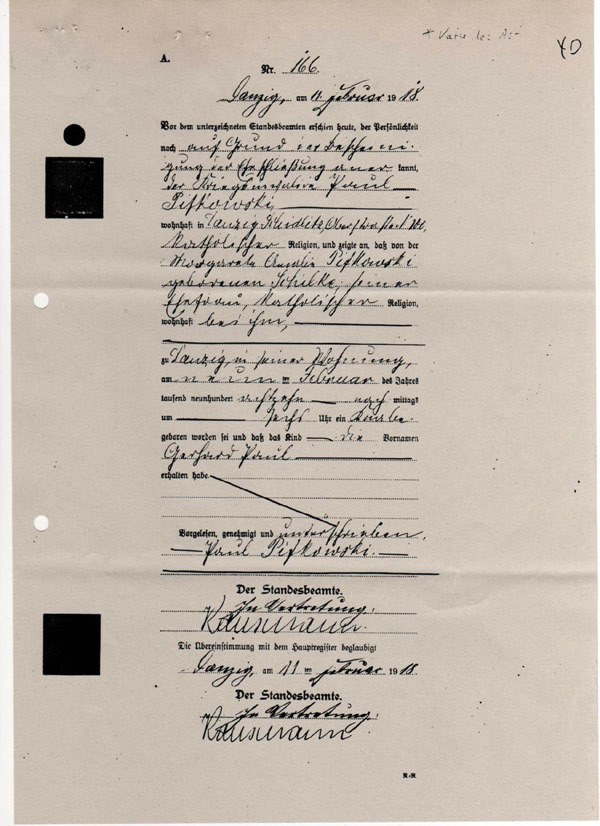 A.
Nr. 166.
Danzig, am 11. Februar 1918.
Vor dem unterzeichneten Standesbeamten erschien heute, der Persönlichkeit
nach auf Grund der Beschei-
gung der Eheschließung aner kannt,
der Kriegsinvalide Paul
Pifkowski,
wohnhaft in Danzig Schidlitz, Oberstraße
katholischer Religion, und zeigte an, daß von der
Margarete Amalie Pifkowski
geborenen Schielke, seiner
Ehefrau, katholischer Religion,
wohnhaft bei ihm,
zu Danzig, in seiner Wohnung,
am neun ten Februar des Jahres
tausend neunhundert achtzehn nach mittags
um sechs Uhr ein Knabe
geboren worden sei und daß das Kind die Vornamen
Gerhard Paul
erhalten habe.
Vorgelesen, genehmigt und unterschrieben.
Paul Pifkowski.
Der Standesbeamte.
In Vertretung.
Die Übereinstimmung mit dem Hauptregister beglaubigt
Danzig, am 11 ten Februar 1918.
Der Standesbeamte.
In Vertretung.